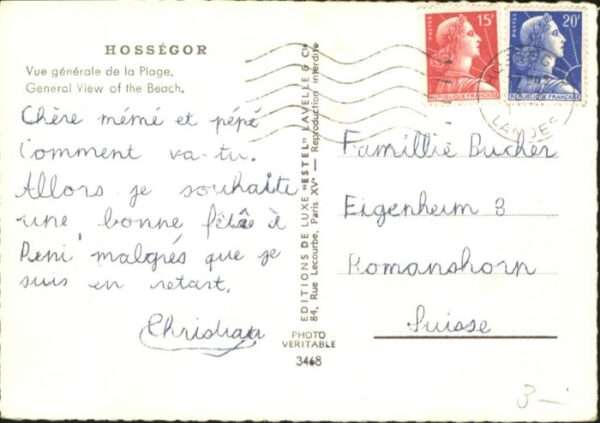 HOSSÉGOR
Vue générale de la Plage.
General View of the Beach.
Chère mémé et pépé
Comment va-tu.
Allors je souhaite
une bonne fête à
Réni malgrés que je
suis en retart.
Christian
EDITIONS DE LUXE "ESTEL" LAVELLE & Cie
84, Rue Lecourbe, Paris XVe — Reproduction interdite
PHOTO
VERITABLE
3468
POSTES
15F
REPUBLIQUE FRANÇAISE
POSTES
20F
REPUBLIQUE FRANÇAISE
LANDES
Famillie Bucher
Eigenheim 3
Romanshorn
Suisse
3.-